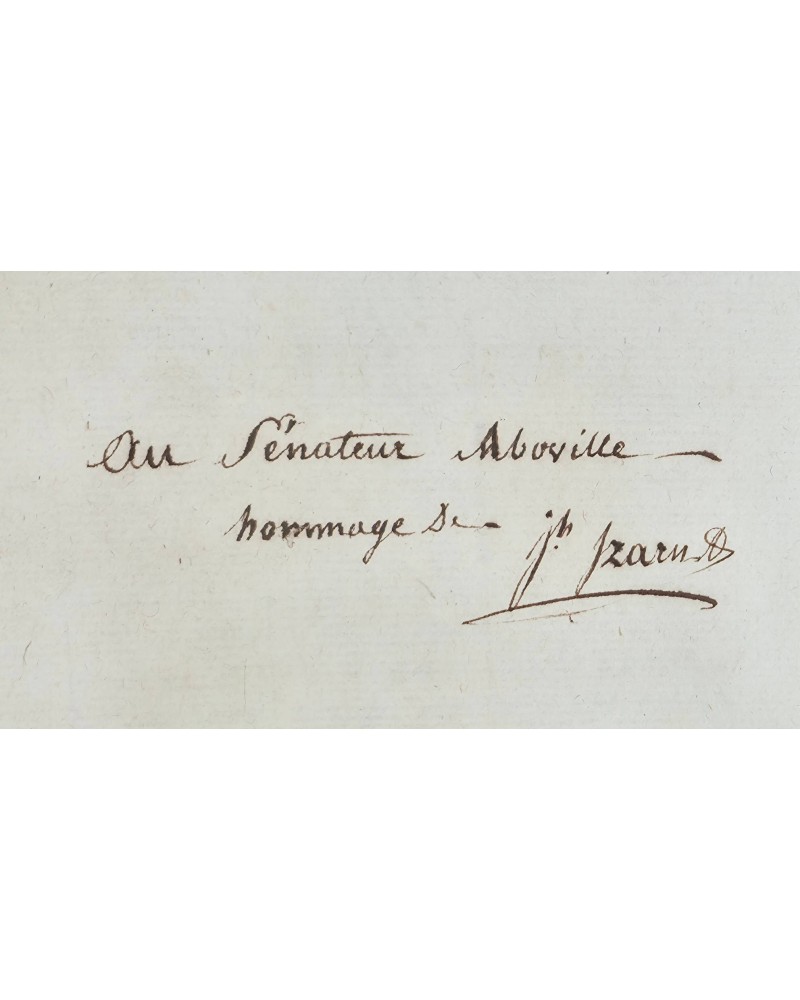 Au Sénateur Aboville —
hommage de — jh. Izarn